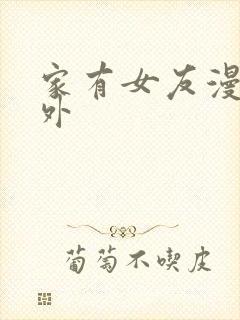 家有女友漫
外
葡萄不喫皮